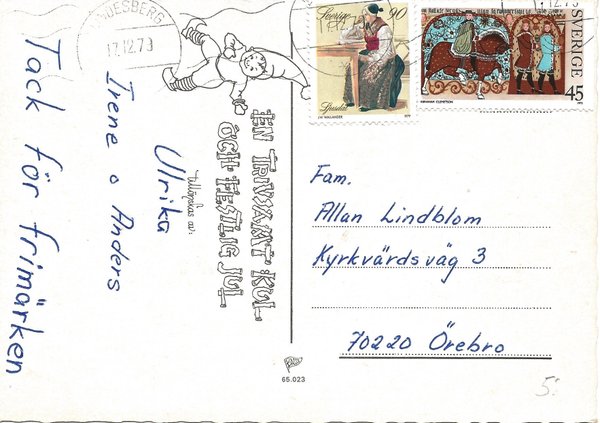 EN TRIVSAMT KUL
OCH FESTLIG JUL
tillönskas av:
Ulrika
Irene o Anders
Tack för frimärken
12.12.79
Sverige 90
Ljusdal
SVERIGE 45
12.79
Fam.
Allan Lindblom
Kyrkvärdsväg 3
70220 Örebro
65.023
5: